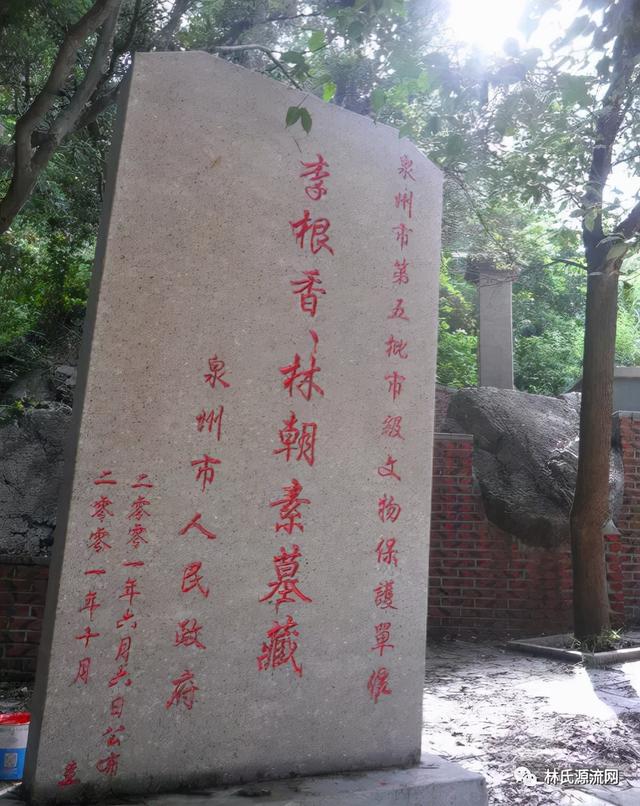 泉州市第五批市級文物保護單位
李根香、林朝素墓藏
泉州市人民政府
二零零一年六月六日公布
二零零一年十月 立
林氏源流网